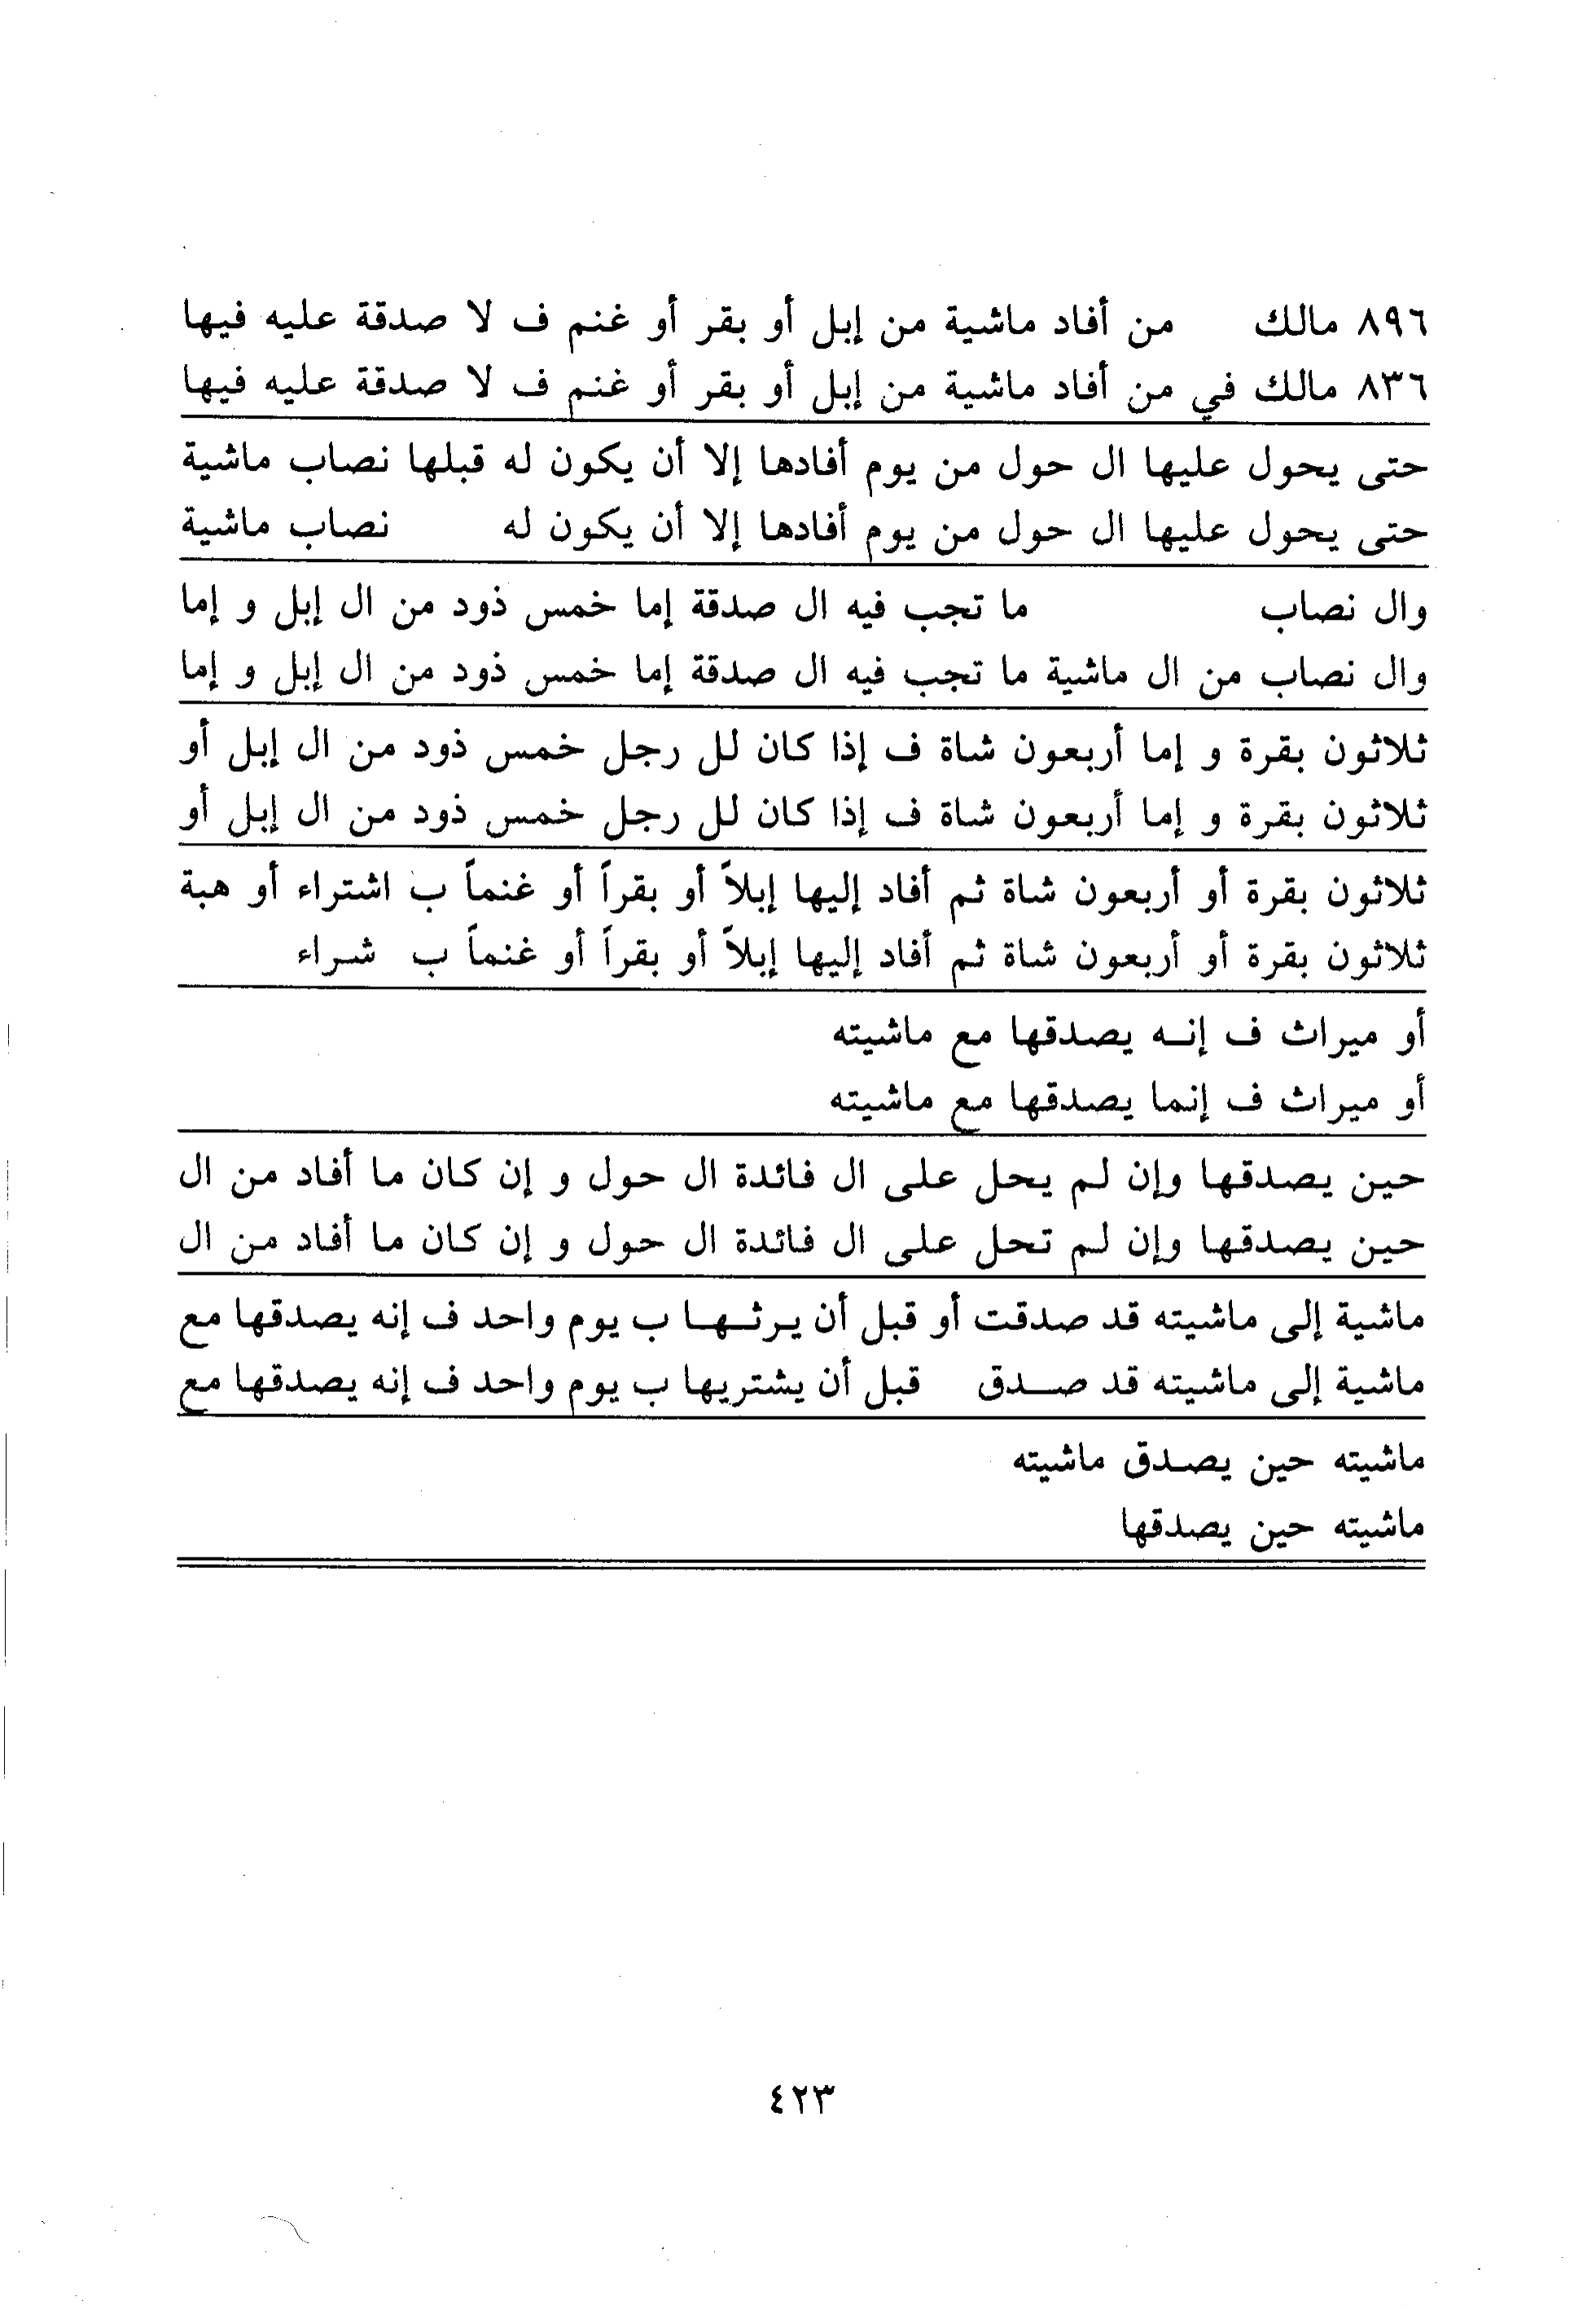 ٨٩٦ مالك من أفاد ماشية من إبل أو بقر أو غنم ف لا صدقة عليه فيها
٨٣٦ مالك في من أفاد ماشية من إبل أو بقر أو غنم ف لا صدقة عليه فيها
حتى يحول عليها ال حول من يوم أفادها إلا أن يكون له قبلها نصاب ماشية
حتى يحول عليها ال حول من يوم أفادها إلا أن يكون له نصاب ماشية
وال نصاب ما تجب فيه ال صدقة إما خمس ذود من ال إبل و إما
وال نصاب من ال ماشية ما تجب فيه ال صدقة إما خمس ذود من ال إبل و إما
ثلاثون بقرة و إما أربعون شاة ف إذا كان لل رجل خمس ذود من ال إبل أو
ثلاثون بقرة و إما أربعون شاة ف إذا كان لل رجل خمس ذود من ال إبل أو
ثلاثون بقرة أو أربعون شاة ثم أفاد إليها إبلاً أو بقراً أو غنماً ب اشتراء أو هبة
ثلاثون بقرة أو أربعون شاة ثم أفاد إليها إبلاً أو بقراً أو غنماً ب شراء
أو ميراث ف إنه يصدقها مع ماشيته
أو ميراث ف إنما يصدقها مع ماشيته
حين يصدقها وإن لم يحل على ال فائدة ال حول و إن كان ما أفاد من ال
حين يصدقها وإن لم تحل على ال فائدة ال حول و إن كان ما أفاد من ال
ماشية إلى ماشيته قد صدقت أو قبل أن يرثها ب يوم واحد ف إنه يصدقها مع
ماشية إلى ماشيته قد صدق قبل أن يشتريها ب يوم واحد ف إنه يصدقها مع
ماشيته حين يصدق ماشيته
ماشيته حين يصدقها
٤٢٣